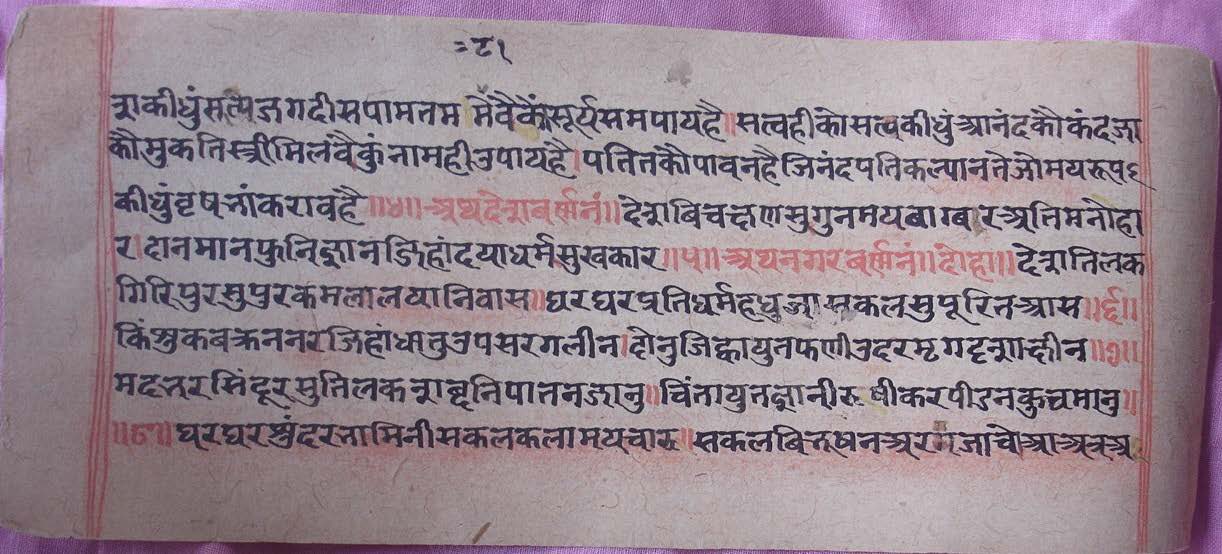 =८१
की धुं सत्य जगदीस पामतम मैं वैकैं सूर्य सम पाय है॥ सत्व ही को सत्व की धुं आनंद कौ कंद
कौ मुकति स्त्री मिलवैकुं नाम ही उपाय है। पतित कौ पावन है जिनंद पति
की धुं कराव है॥४॥ अथ देश वर्णनं॥ देश विचक्षण सुगुन मय वाग्वर अति मनोहा
र। दान मान फुनि ज्ञान जिहां दया धर्म सुखकार॥५॥ अथ नगर वर्णनं॥ दोहा॥ देश तिलक
गिरिपुर सुपुर कमलालया निवास॥ घर घर प्रति धर्मह धुजा सकल सुपूरित आस॥६॥
किंशुक वक्रत न नर जिहां धातु उपसर्ग लीन। दोनु जिह्वायुत फणी उदर मृगदृश हीन॥७॥
सिंदूर सुतिलक पातन जानु॥ चिंतायुत ज्ञानी ऋषी कर पीडन कुच मानु॥
॥८॥ घर घर सुंदर भामिनी सकल कलामय चारु॥ सकल विभूषन